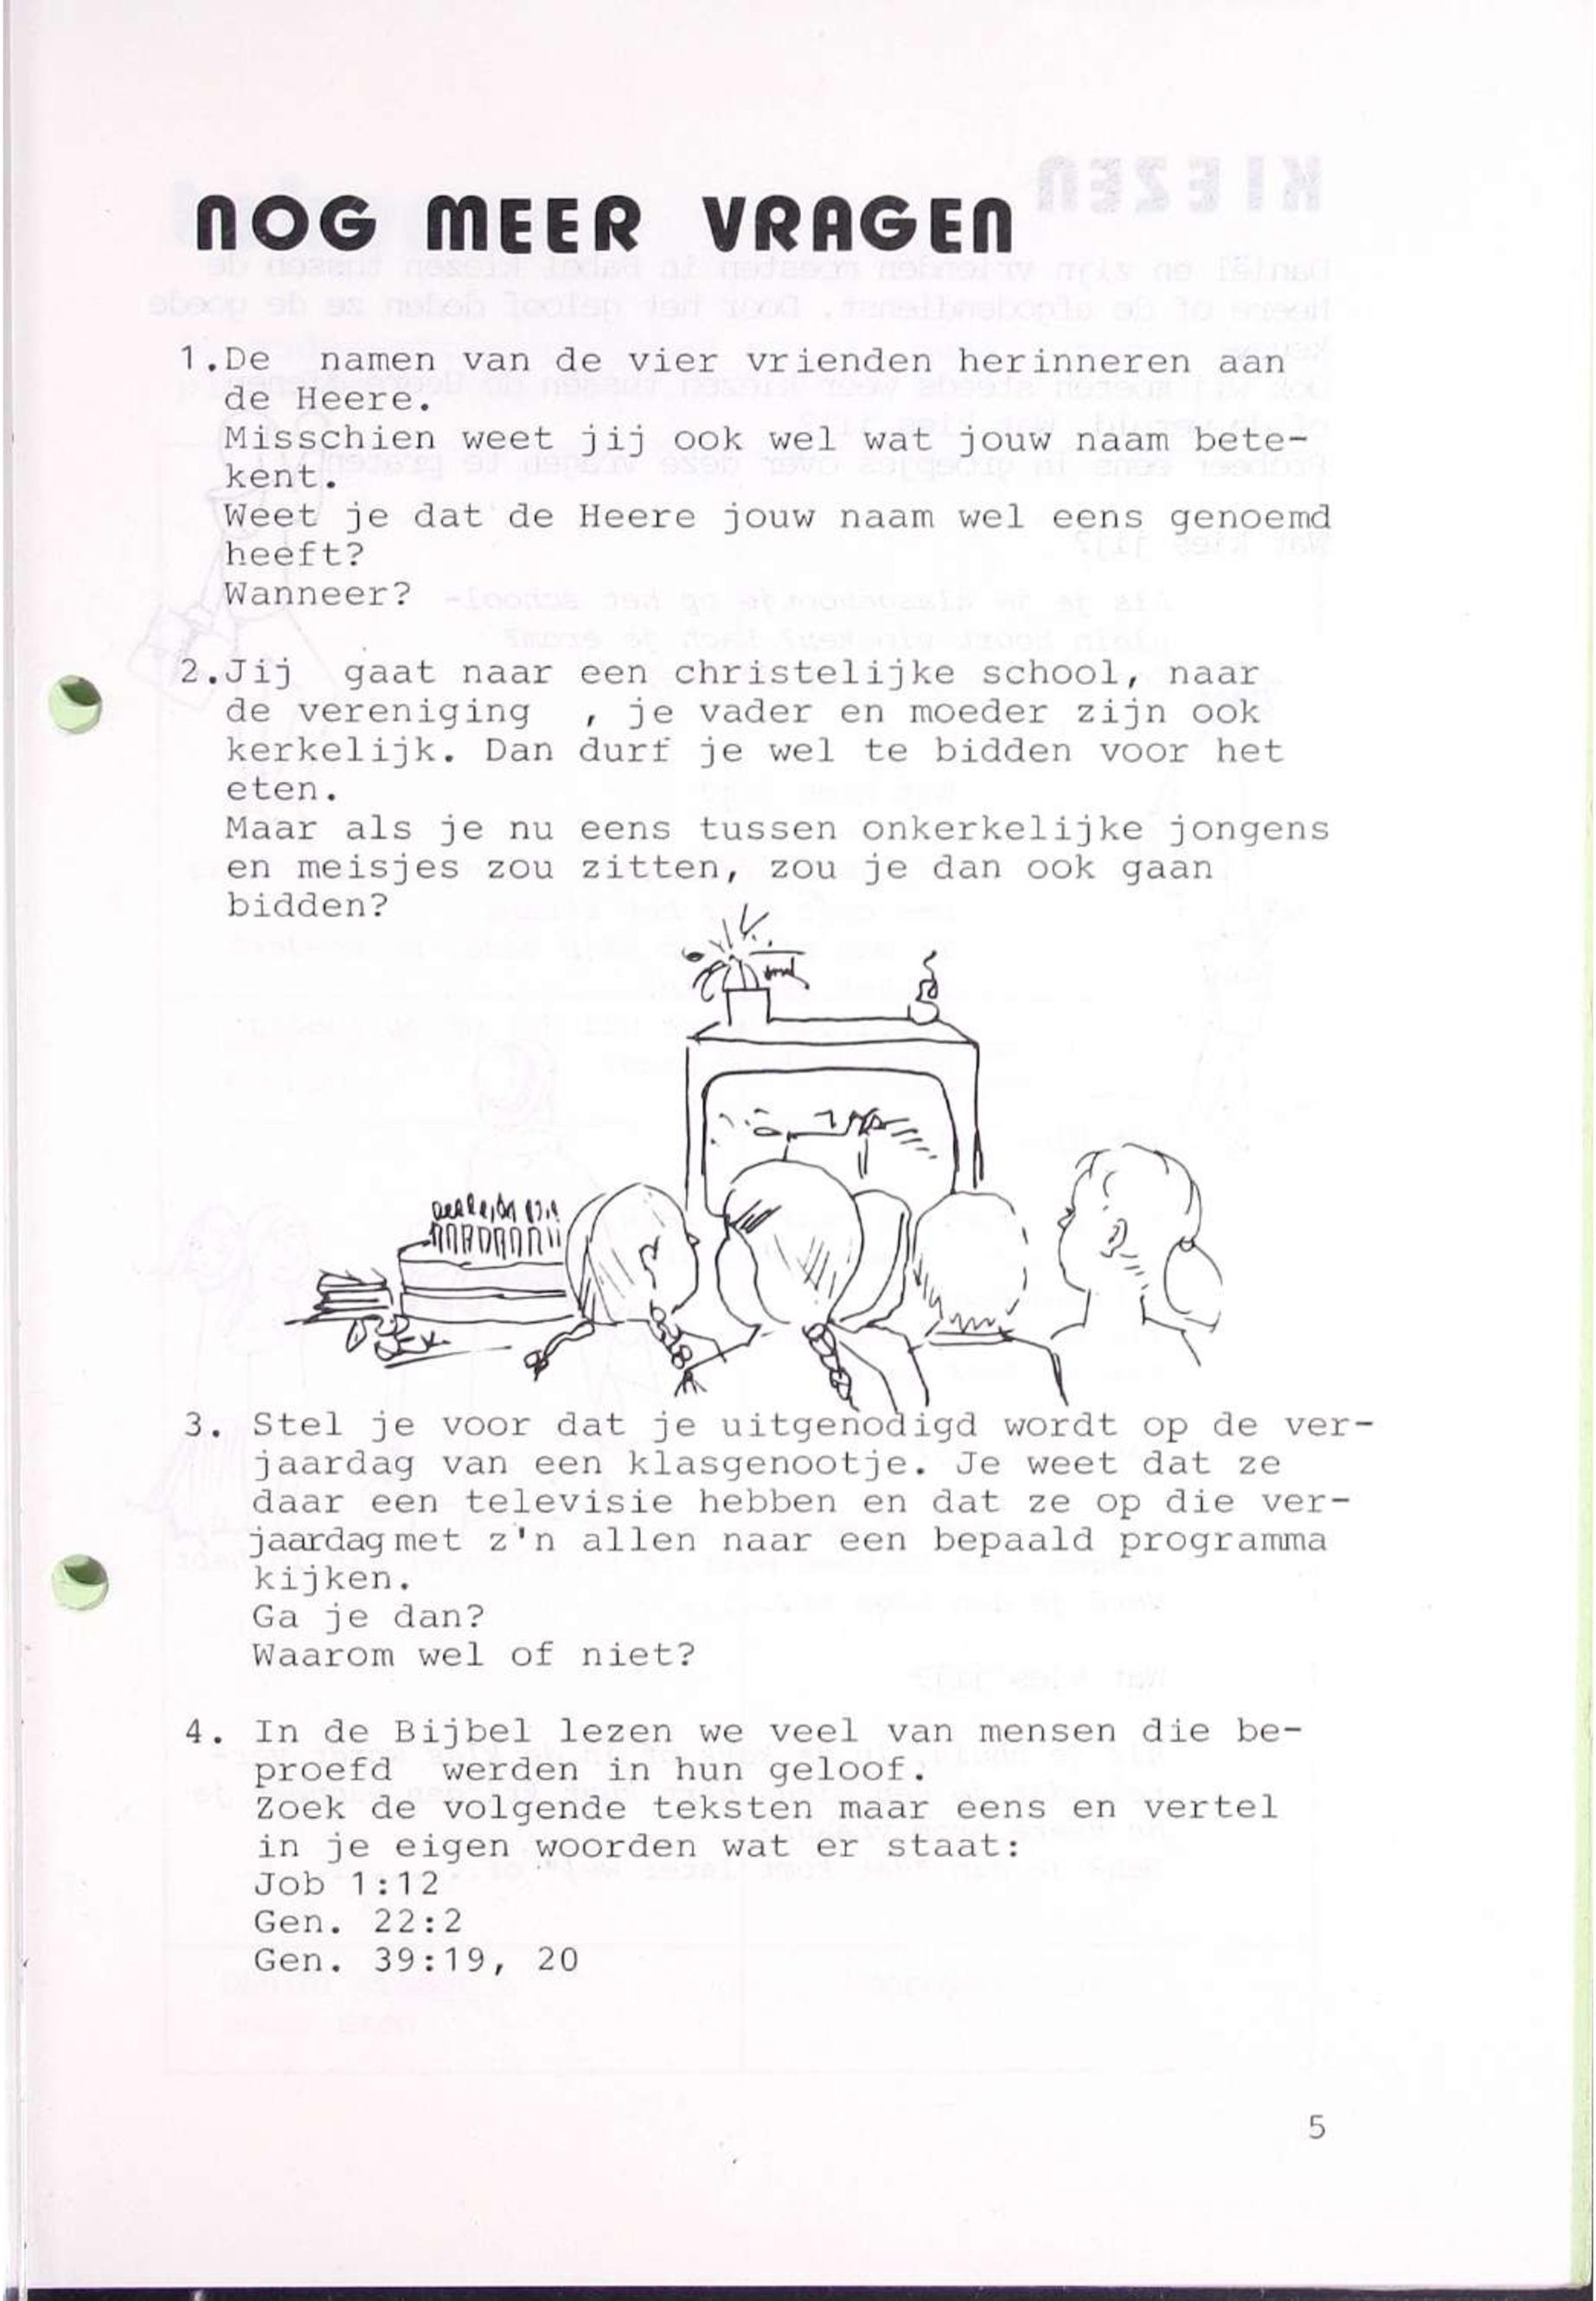 NOG MEER VRAGEN
1.De namen van de vier vrienden herinneren aan
de Heere.
Misschien weet jij ook wel wat jouw naam bete-
kent.
Weet je dat de Heere jouw naam wel eens genoemd
heeft?
Wanneer?
2.Jij gaat naar een christelijke school, naar
de vereniging , je vader en moeder zijn ook
kerkelijk. Dan durf je wel te bidden voor het
eten.
Maar als je nu eens tussen onkerkelijke jongens
en meisjes zou zitten, zou je dan ook gaan
bidden?
3. Stel je voor dat je uitgenodigd wordt op de ver-
jaardag van een klasgenootje. Je weet dat ze
daar een televisie hebben en dat ze op die ver-
jaardag met z'n allen naar een bepaald programma
kijken.
Ga je dan?
Waarom wel of niet?
4. In de Bijbel lezen we veel van mensen die be-
proefd werden in hun geloof.
Zoek de volgende teksten maar eens en vertel
in je eigen woorden wat er staat:
Job 1:12
Gen. 22:2
Gen. 39:19, 20
5